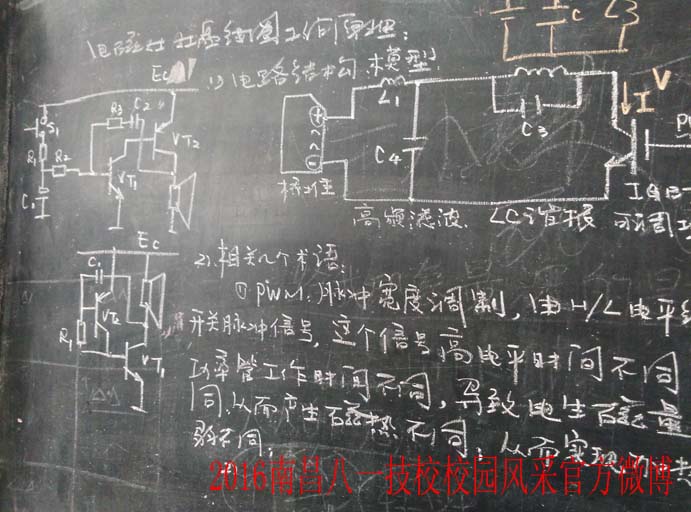 电磁灶 线圈工作原理:
1) 电路结构 模型
Ec
S1
R1
R2
R3
C2
VT1
VT2
C1
L1
C4
C3
I
V
L3
C
高频滤波. LC谐振 可调
Ec
C1
R1
VT2
VT1
2). 相关几个术语:
① PWM. 脉冲宽度调制, 由H/L电平
开关脉冲信号, 这个信号高电平时间不同
功率管工作时间不同, 导致电生磁量
同. 从而产生磁热不同, 从而实现
弱不同;
2016南昌八一技校校园风采官方微博